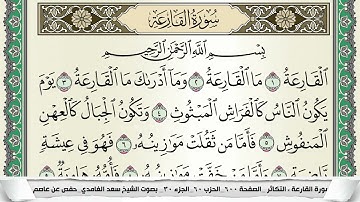 سُورَةُ القَارِعَةِ
بِسْمِ اللَّهِ الرَّحْمَٰنِ الرَّحِيمِ
الْقَارِعَةُ ١ مَا الْقَارِعَةُ ٢ وَمَا أَدْرَاكَ مَا الْقَارِعَةُ ٣ يَوْمَ
يَكُونُ النَّاسُ كَالْفَرَاشِ الْمَبْثُوثِ ٤ وَتَكُونُ الْجِبَالُ كَالْعِهْنِ
الْمَنفُوشِ ٥ فَأَمَّا مَن ثَقُلَتْ مَوَازِينُهُ ٦ فَهُوَ فِي عِيشَةٍ
سورة القارعة ، التكاثر . الصفحة ٦٠٠ . الحزب ٦٠ . الجزء ٣٠ . بصوت الشيخ سعد الغامدي . حفص عن عاصم